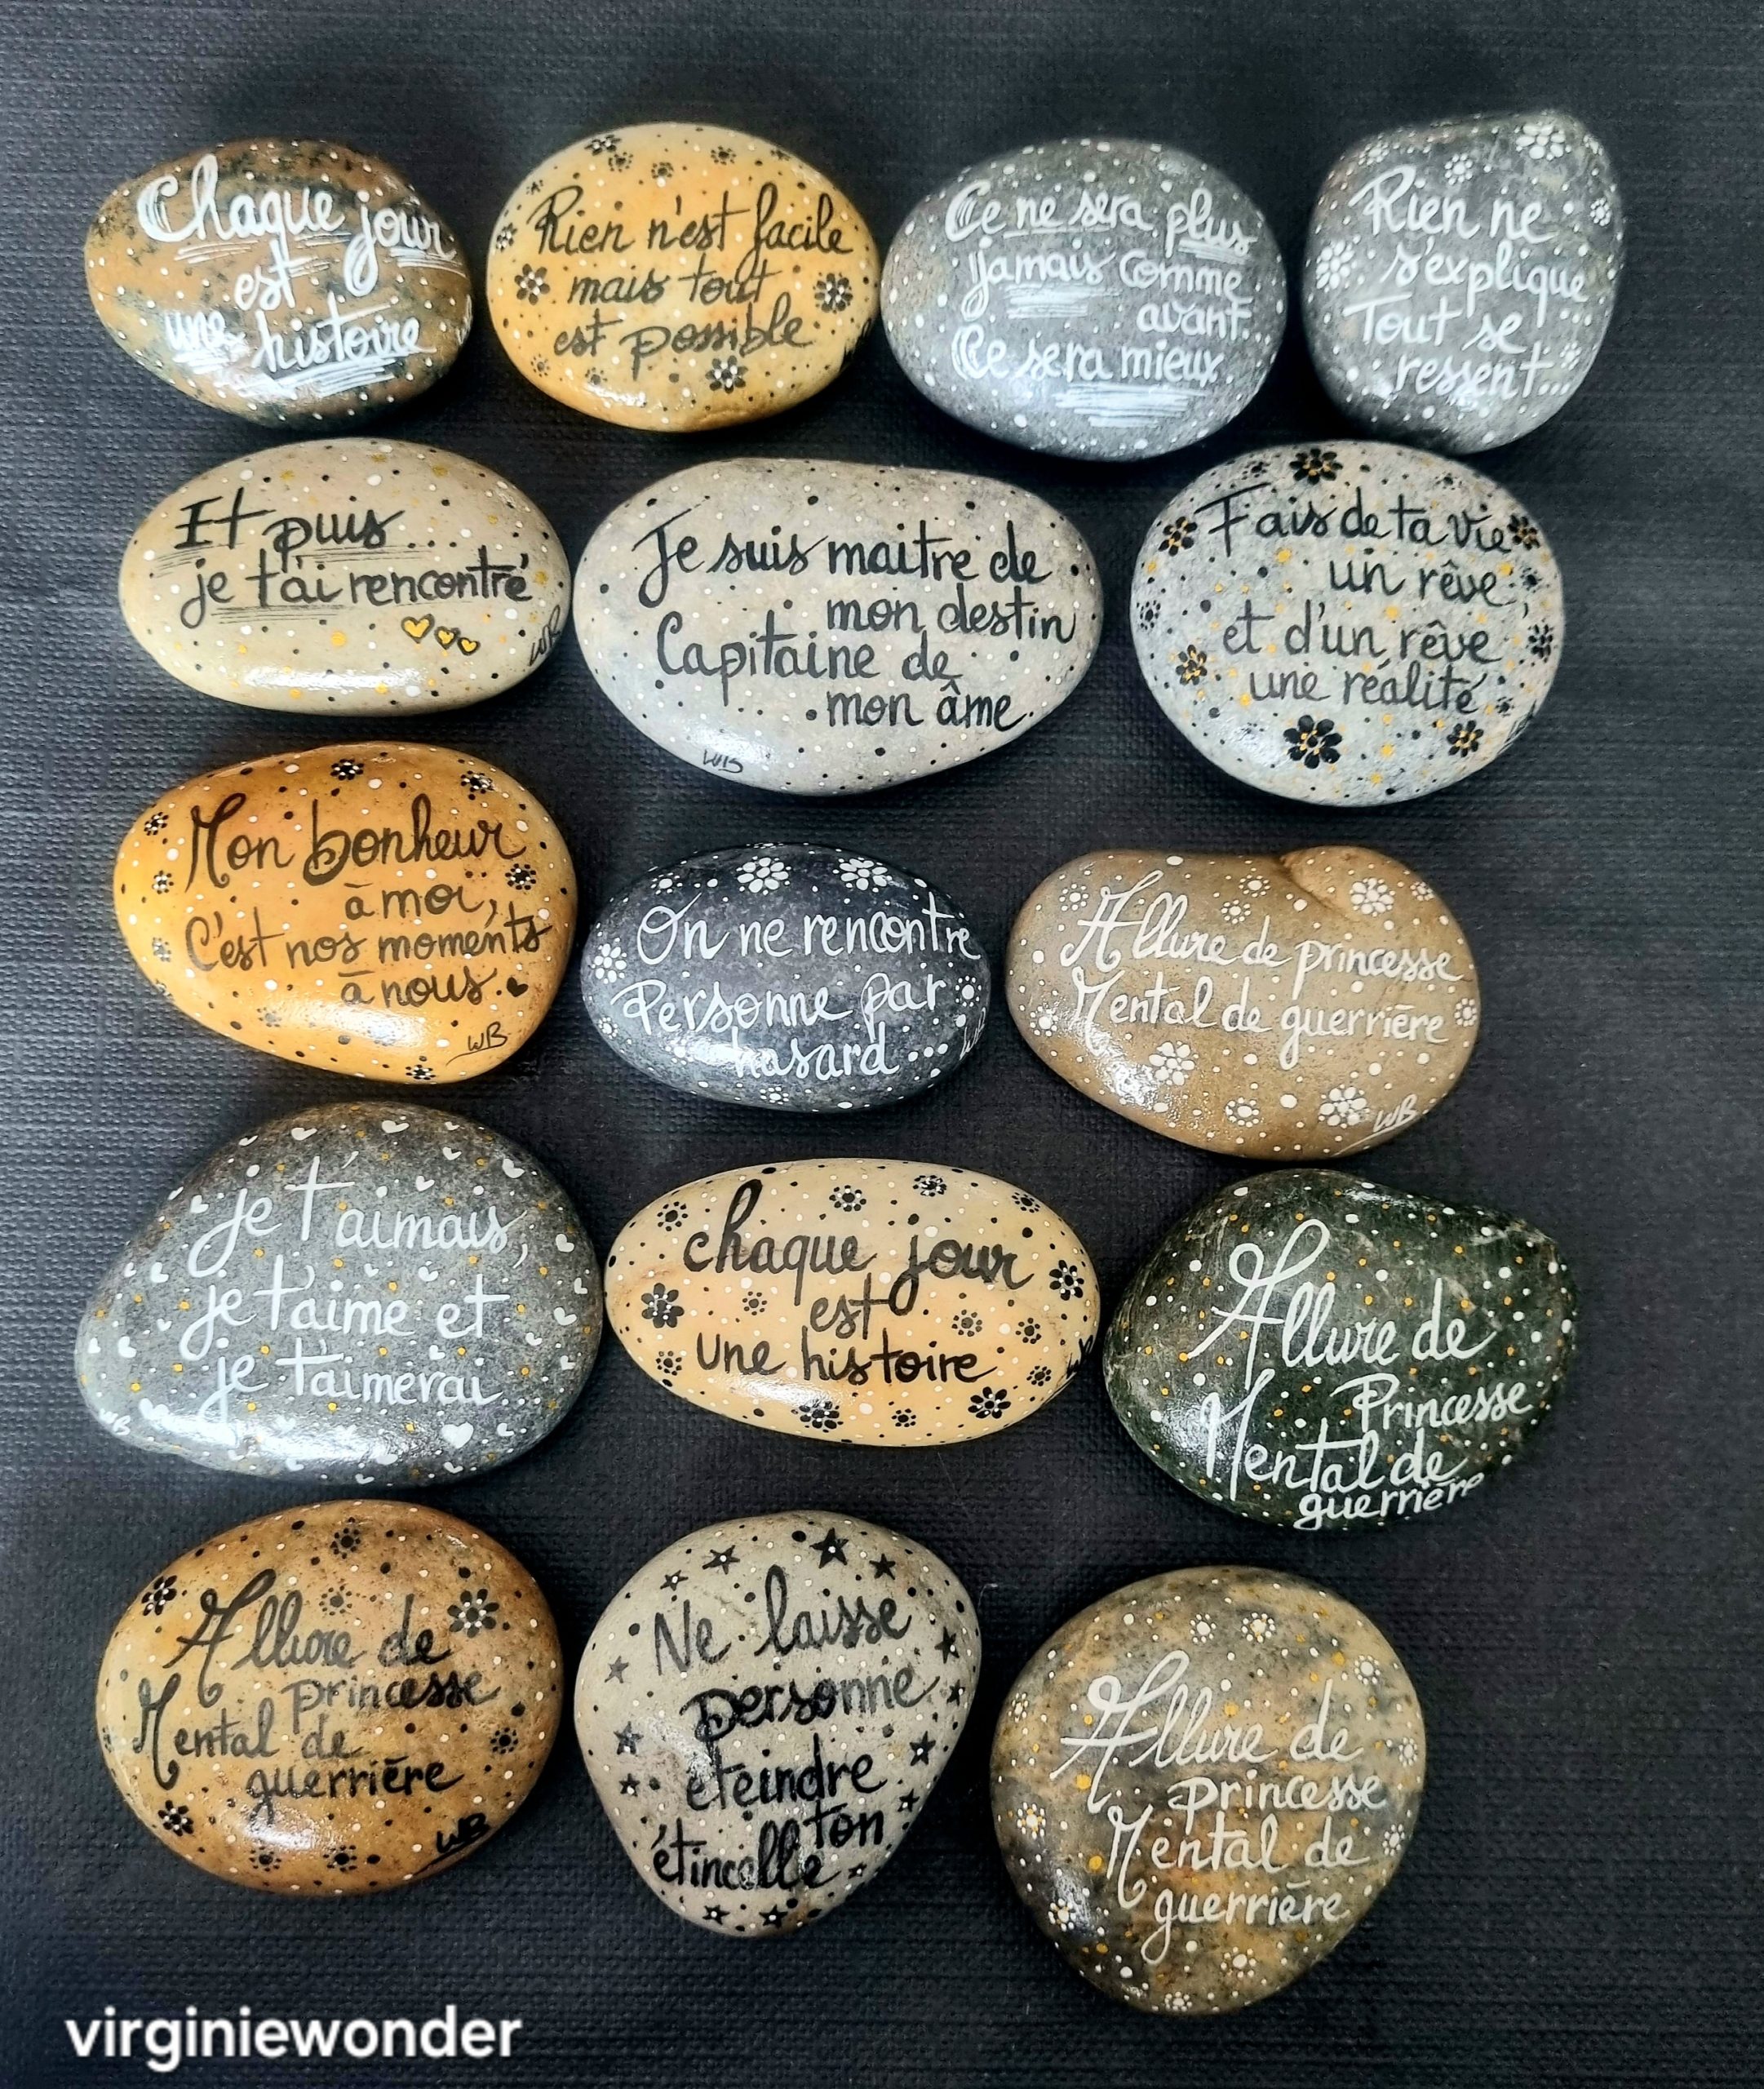 Chaque jour
est
une histoire
Rien n'est facile
mais tout
est possible
Ce ne sera plus
jamais comme
avant.
Ce sera mieux
Rien ne
s'explique
Tout se
ressent...
Et puis...
je t'ai rencontré
WB
Je suis maitre de
mon destin
Capitaine de
mon âme.
WB
Fais de ta vie
un rêve,
et d'un rêve
une réalité
Mon bonheur
à moi,
C'est nos moments
à nous.
WB
On ne rencontre
Personne par
hasard...
Allure de princesse
Mental de guerrière
WB
je t'aimais,
je t'aime et
je t'aimerai
WB
chaque jour
est
une histoire
Allure de
Princesse
Mental de
guerrière
Allure de
princesse
Mental de
guerrière
WB
Ne laisse
personne
éteindre
ton
étincelle
Allure de
princesse
Mental de
guerrière
virginiewonder